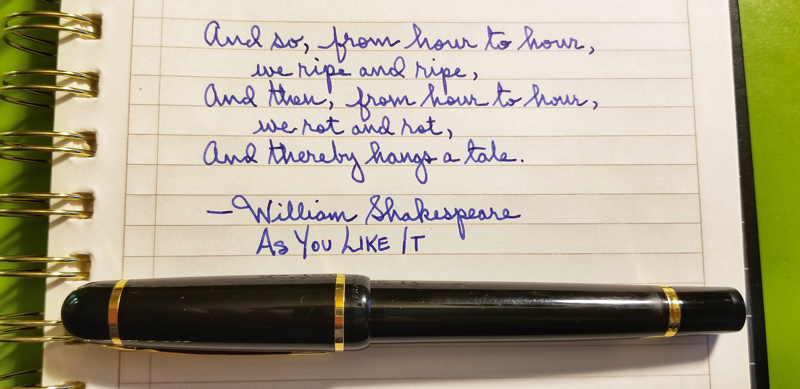 And so, from hour to hour,
we ripe and ripe,
And then, from hour to hour,
we rot and rot,
And thereby hangs a tale.
—William Shakespeare
AS YOU LIKE IT